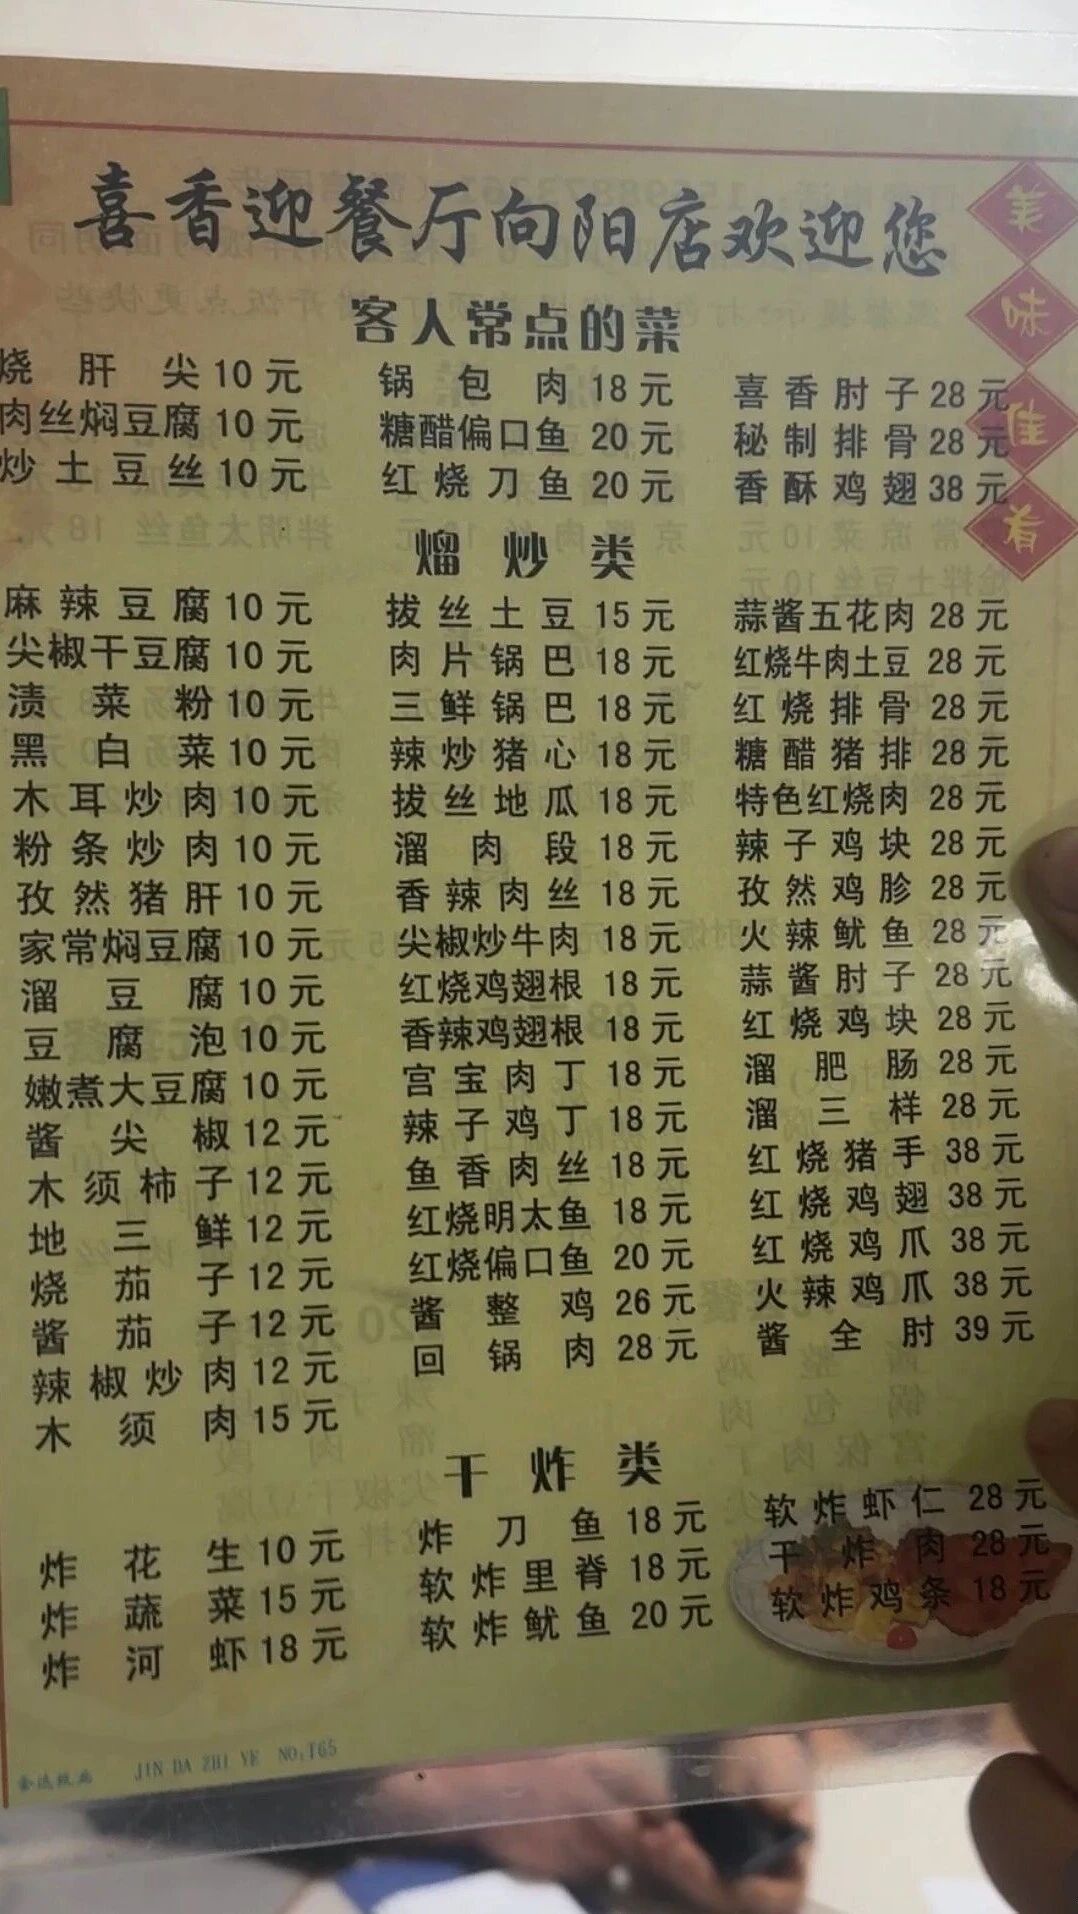 喜香迎餐厅向阳店欢迎您
美味佳肴
客人常点的菜
烧肝尖 10元 锅包肉 18元 喜香肘子 28元
肉丝焖豆腐 10元 糖醋偏口鱼 20元 秘制排骨 28元
炒土豆丝 10元 红烧刀鱼 20元 香酥鸡翅 38元
熘炒类
麻辣豆腐 10元 拔丝土豆 15元 蒜酱五花肉 28元
尖椒干豆腐 10元 肉片锅巴 18元 红烧牛肉土豆 28元
渍菜粉 10元 三鲜锅巴 18元 红烧排骨 28元
黑白菜 10元 辣炒猪心 18元 糖醋猪排 28元
木耳炒肉 10元 拔丝地瓜 18元 特色红烧肉 28元
粉条炒肉 10元 溜肉段 18元 辣子鸡块 28元
孜然猪肝 10元 香辣肉丝 18元 孜然鸡胗 28元
家常焖豆腐 10元 尖椒炒牛肉 18元 火辣鱿鱼 28元
溜豆腐 10元 红烧鸡翅根 18元 蒜酱肘子 28元
豆腐泡 10元 香辣鸡翅根 18元 红烧鸡块 28元
嫩煮大豆腐 10元 宫宝肉丁 18元 溜肥肠 28元
酱尖椒 12元 辣子鸡丁 18元 溜三样 28元
木须柿子 12元 鱼香肉丝 18元 红烧猪手 38元
地三鲜 12元 红烧明太鱼 18元 红烧鸡翅 38元
烧茄子 12元 红烧偏口鱼 20元 红烧鸡爪 38元
酱茄子 12元 酱整鸡 26元 火辣鸡爪 38元
辣椒炒肉 12元 回锅肉 28元 酱全肘 39元
木须肉 15元
干炸类
炸花生 10元 炸刀鱼 18元 软炸虾仁 28元
炸蔬菜 15元 软炸里脊 18元 干炸肉 28元
炸河虾 18元 软炸鱿鱼 20元 软炸鸡条 18元
JIN DA ZHI YE NO:T65